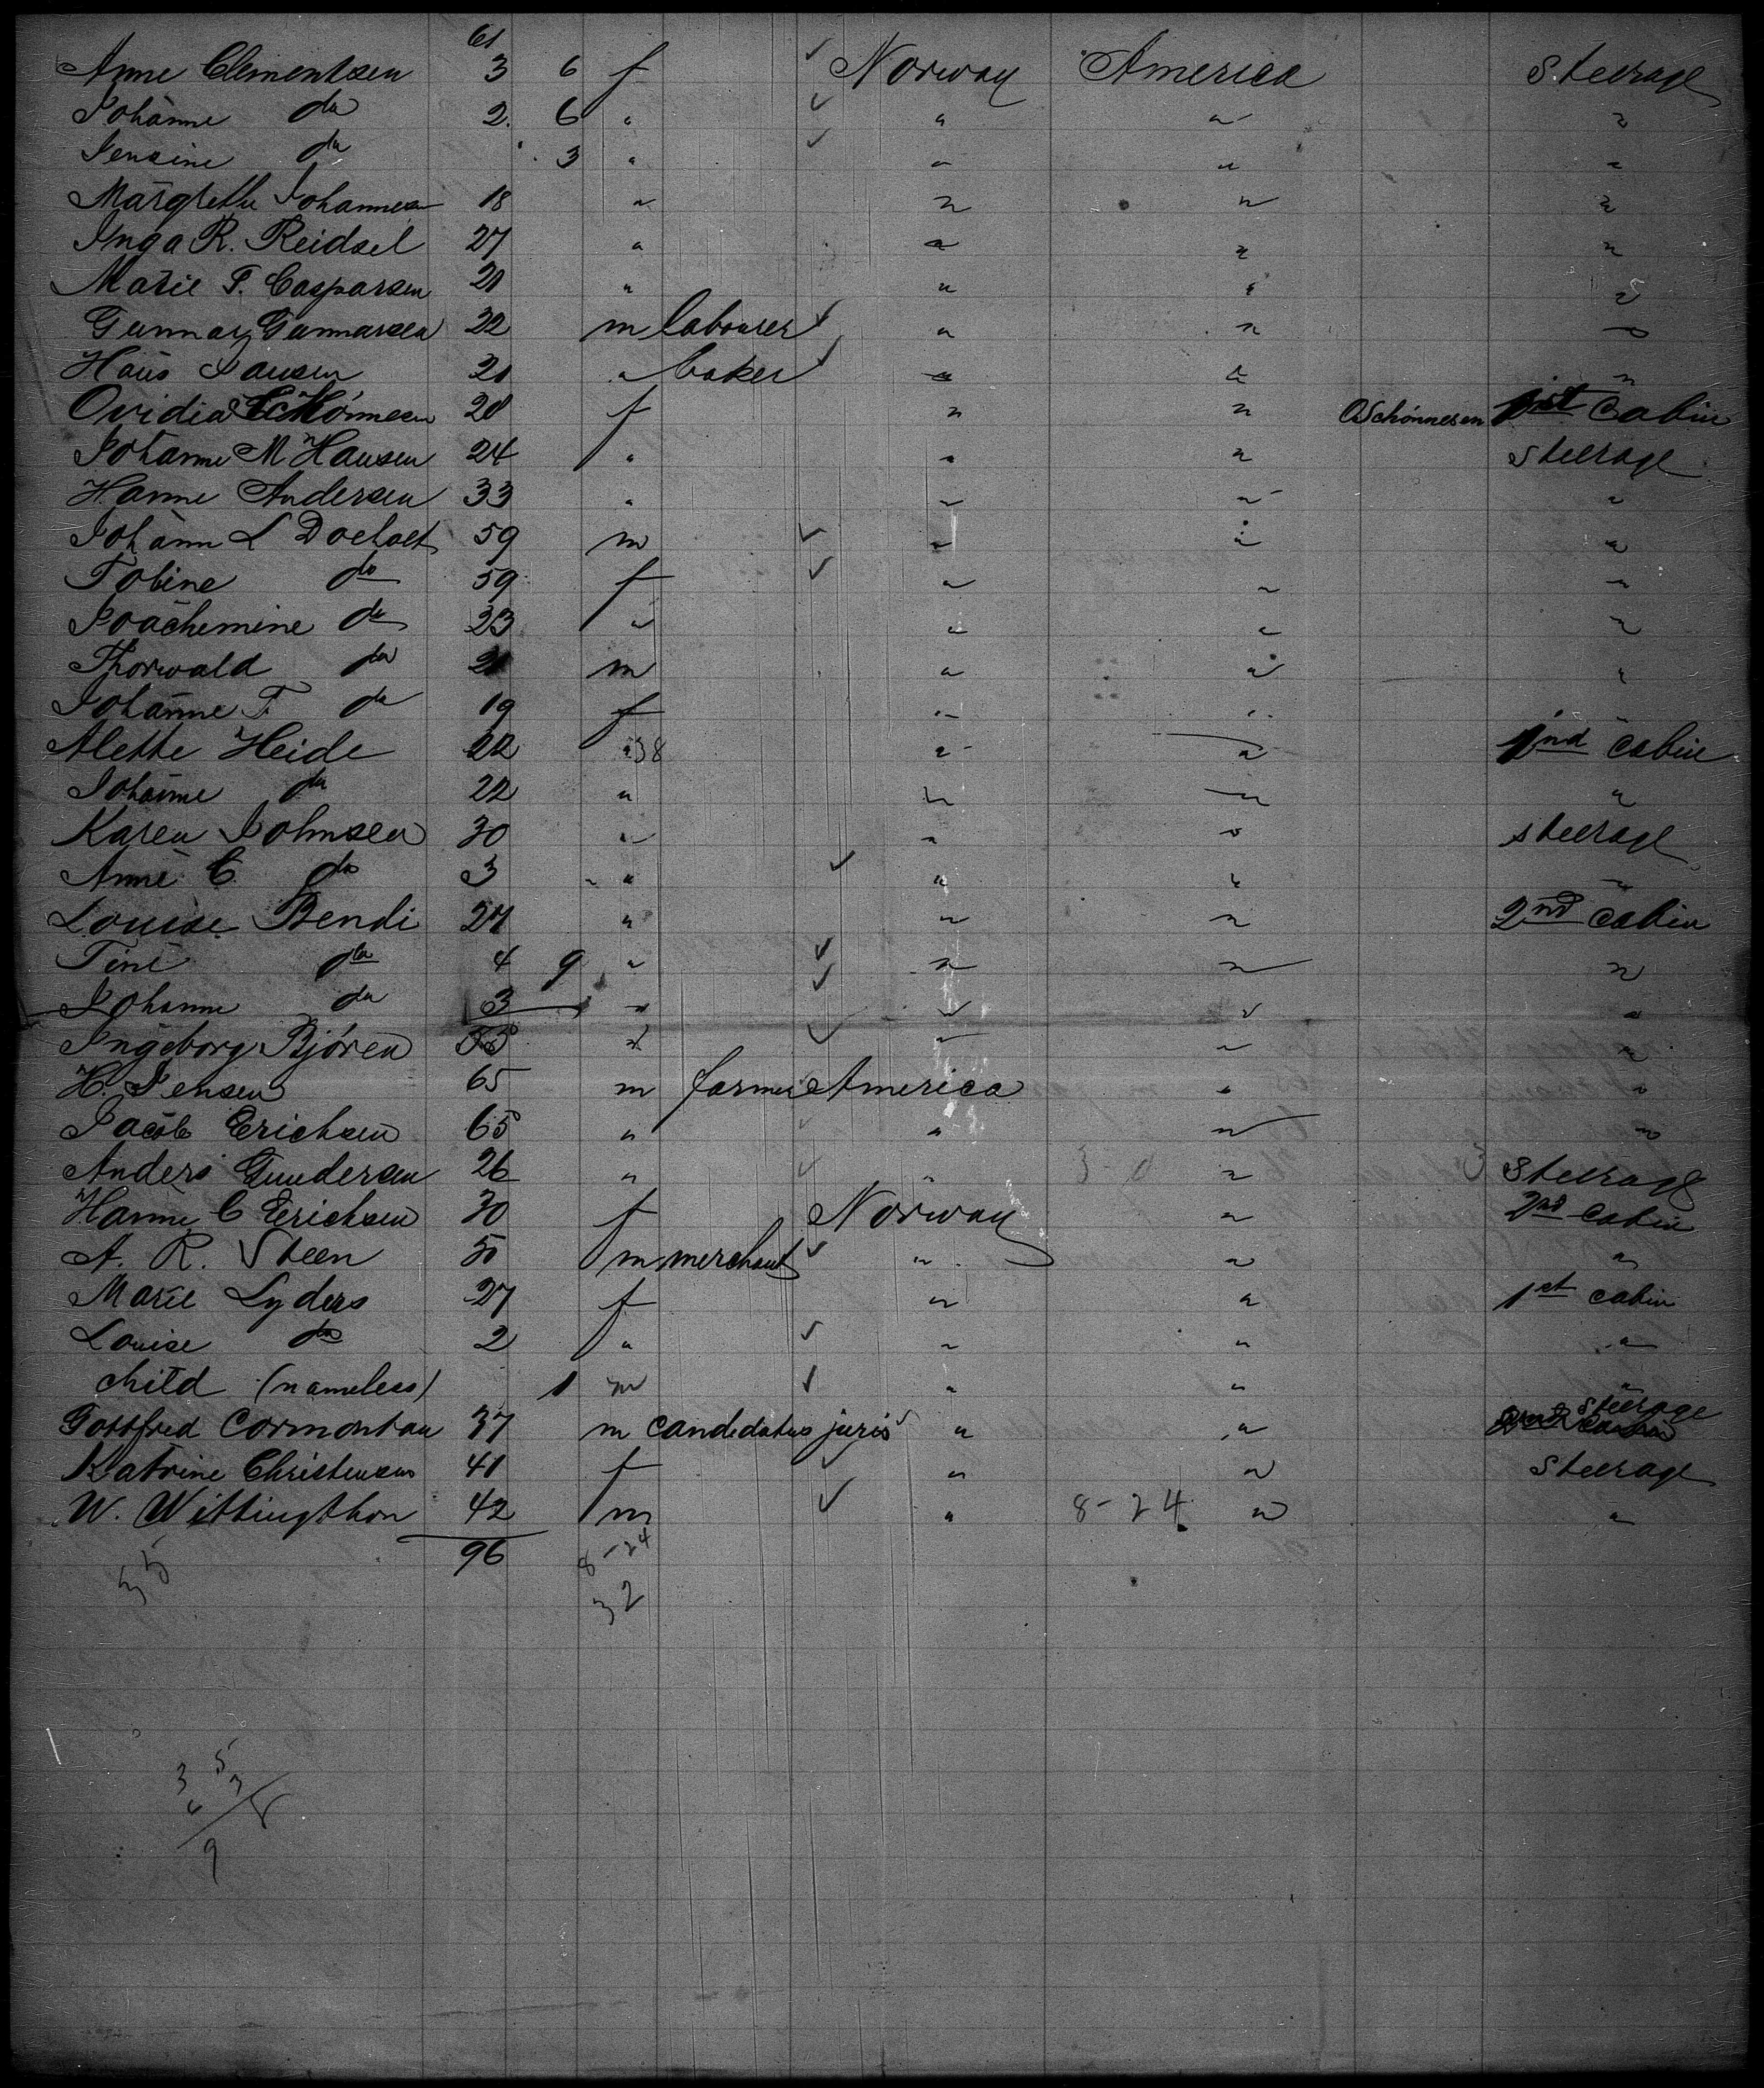 61
Anne Clementsen 3 6 f ✓ Norway America Steerage
Johanne do 2 6 " ✓ " " "
Jensine do 3 " ✓ " " "
Margrethe Johannesen 18 " " " "
Inga R. Reidsel 27 " " " "
Marie F. Casparsen 21 " " " "
Gunnar Gunnarsen 32 m labourer ✓ " " "
Hans Jansen 21 " baker ✓ " " "
Ovidia Schönnesen 28 f " " OSchönnesen 1st Cabin
Johanne M Hansen 24 " " " Steerage
Hanne Andersen 33 " " " "
Johann L 59 m ✓ " " "
Tobine do 59 f ✓ " " "
Joachemine do 23 " " " "
Thorwald do 21 m " " "
Johanne F. do 19 f " " "
Alette Heide 22 " 38 " " 2nd cabin
Johanne do 22 " " " "
Karen Johnsen 30 " " " steerage
Anne C do 3 " ✓ " " "
Louise Bendi 27 " " " 2nd cabin
Tine do 4 9 " ✓ " " "
Johanne do 3 " ✓ " " "
Ingeborg Björen " ✓ " " "
H. Jensen 65 m farmer America " "
Jacob Erichsen 65 " ✓ " " "
Anders Gundersen 26 " ✓ " 3 0 " Steerage
Hanne C Erichsen 30 f Norway " 2nd cabin
A. R. Steen 50 m merchant ✓ " " "
Marie Lyders 27 f " " 1st cabin
Louise do 2 " ✓ " " "
child (nameless) 1 m ✓ " " "
Gottfred Cormontan 37 m candidatus juris ✓ " " steerage
Katrine Christensen 41 f ✓ " " Steerage
W. Wittingthon 42 m ✓ " 8-24 " "
96 8-24
35 32
3 5
9